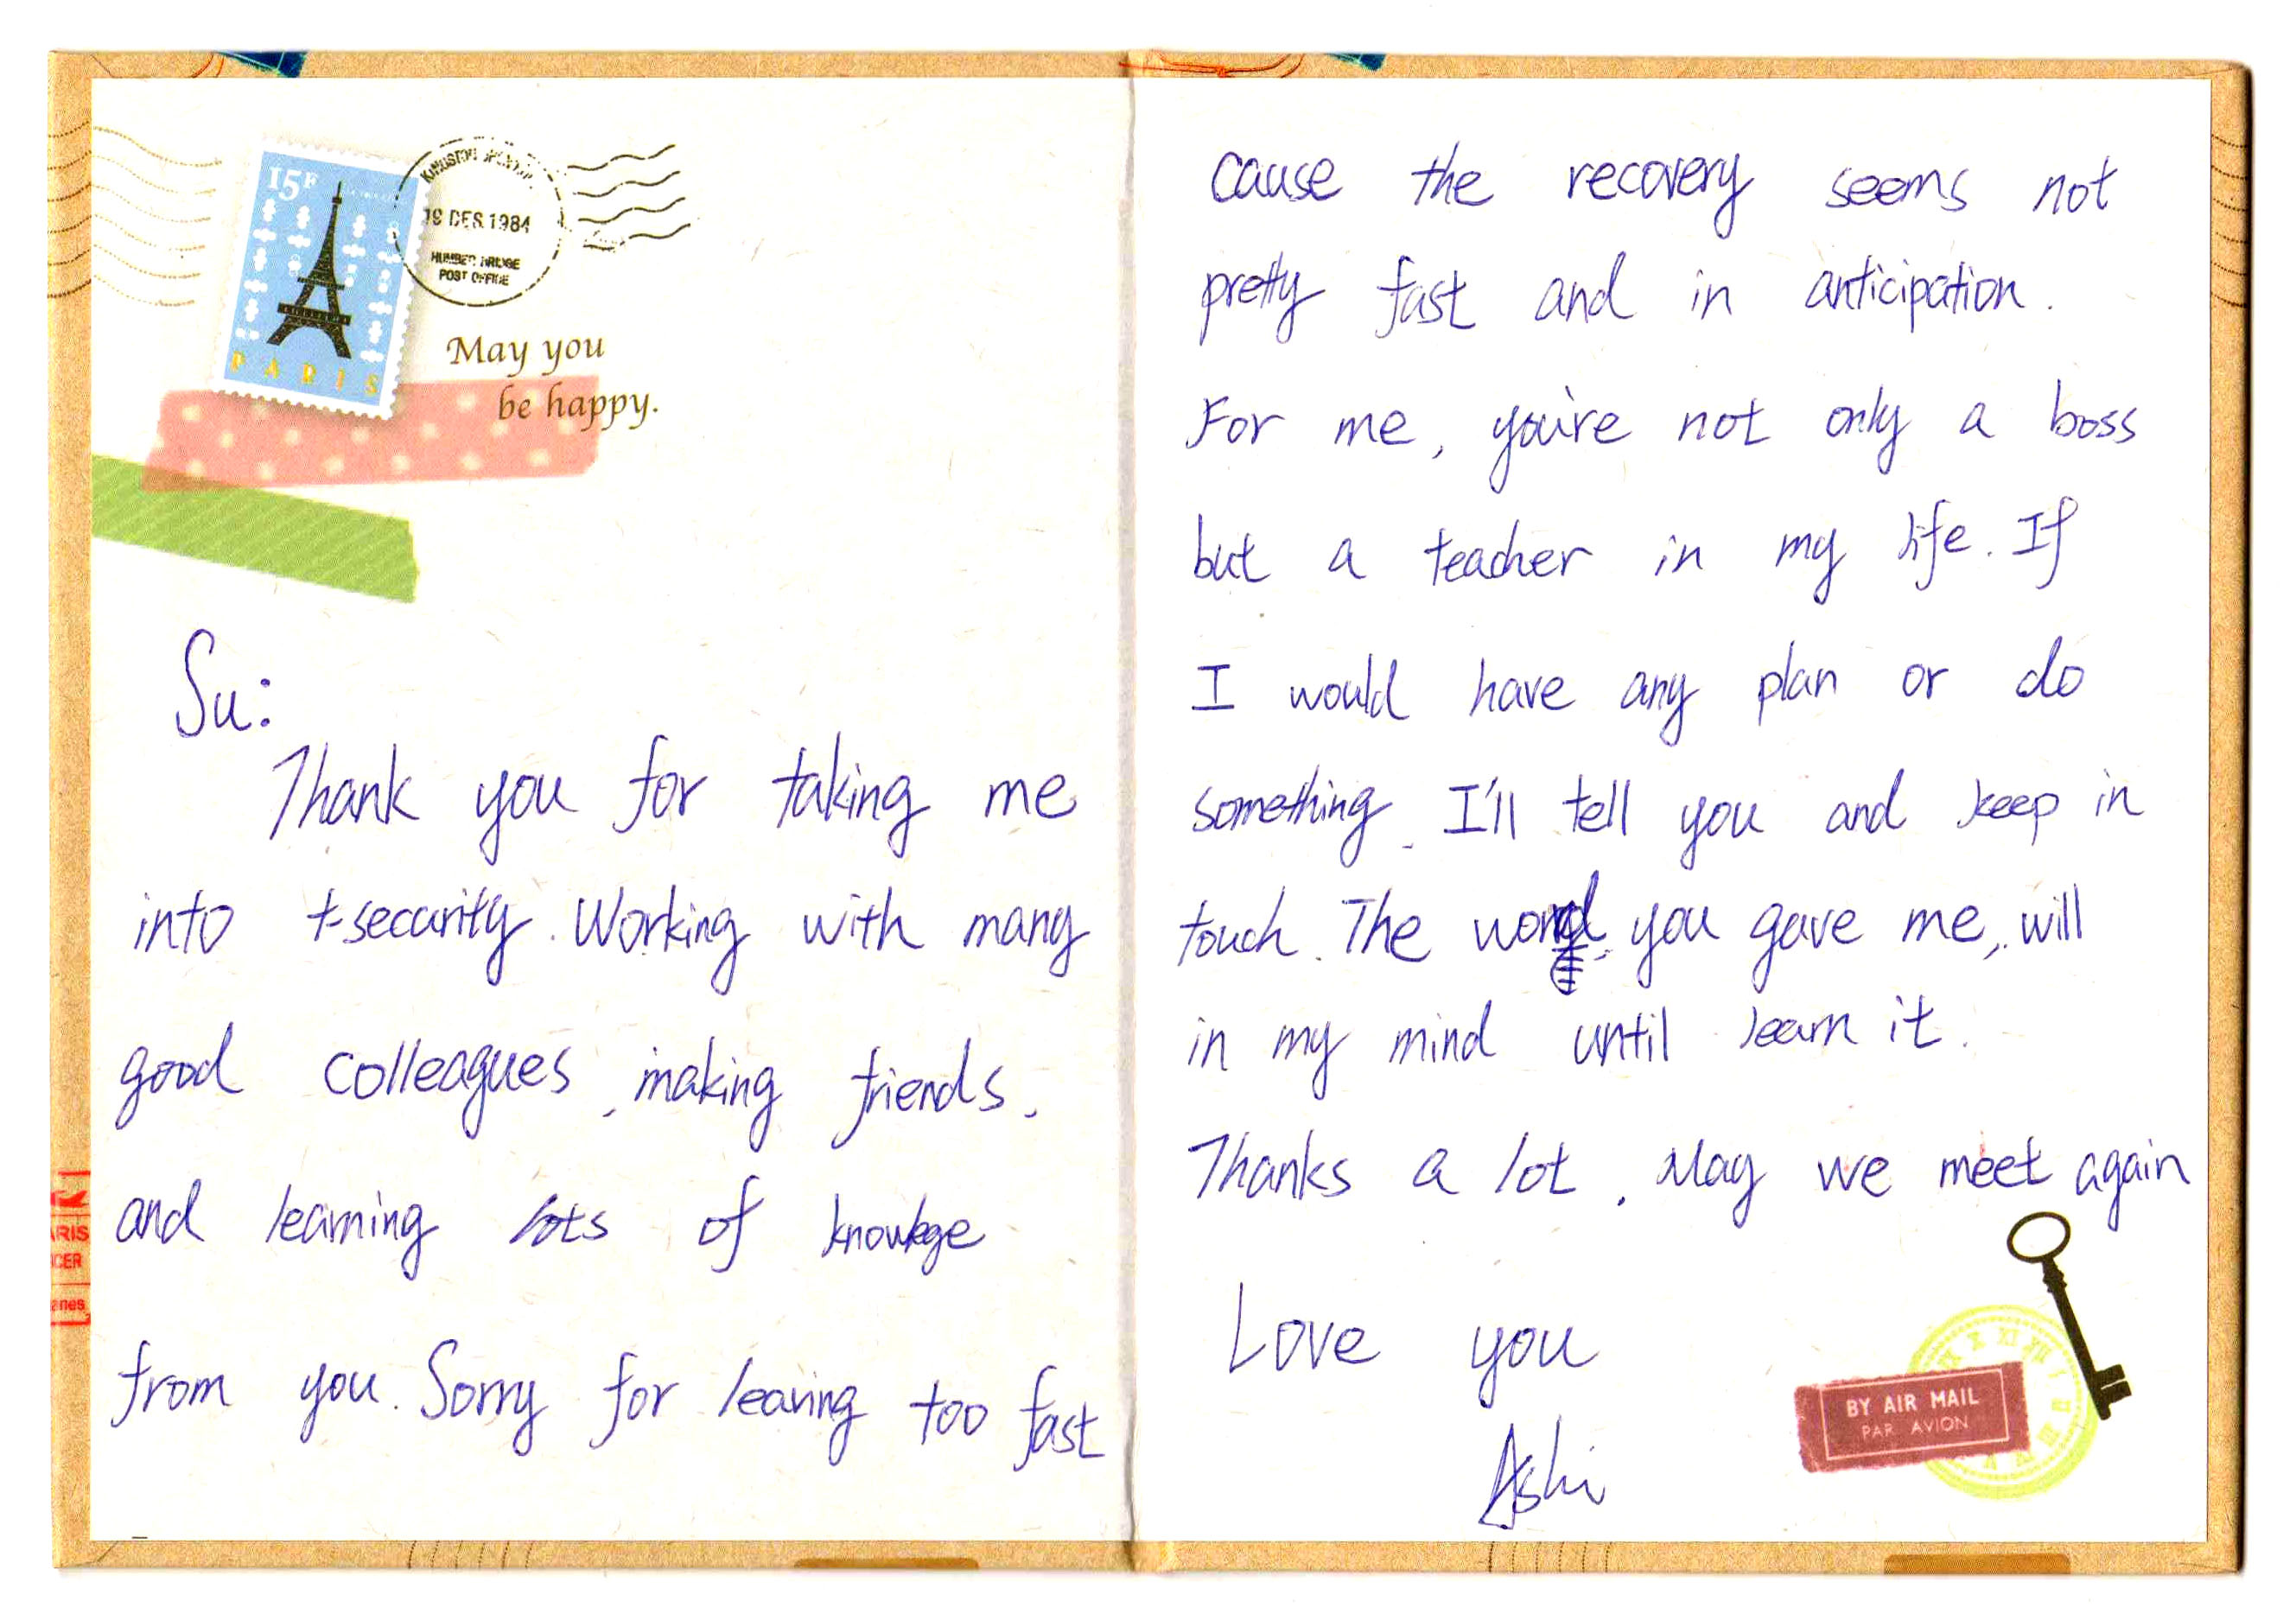 15F
19 DES 1984
HUMBER BRIDGE
POST OFFICE
PARIS
May you
be happy.
Su:
Thank you for taking me
into t-security. Working with many
good colleagues, making friends,
and learning lots of knowlege
from you. Sorry for leaving too fast
cause the recovery seems not
pretty fast and in anticipation.
For me, you're not only a boss
but a teacher in my life. If
I would have any plan or do
something, I'll tell you and keep in
touch. The word, you gave me, will
in my mind until learn it.
Thanks a lot. May we meet again
Love you
Ashi
BY AIR MAIL
PAR AVION
ARIS
CER
anes